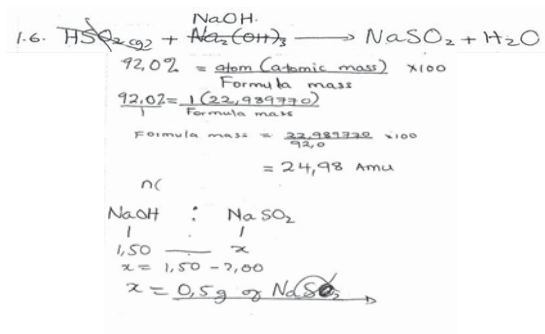 NaOH.
1.6. HSO₂(g) + Na₂(OH)₃ → NaSO₂ + H₂O
92,0% = atom (atomic mass) ×100
Formula mass
92,0% = 1(22,989770)
1 Formula mass
Formula mass = 22,989770 ×100
92,0
= 24,98 Amu
n(
NaOH : NaSO₂
1 : 1
1,50 — x
x = 1,50 - 2,00
x = 0,5g of NaSO₂